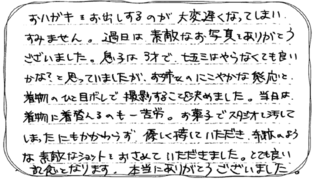 おハガキをお出しするのが大変遅くなってしまい
すみません。過日は素敵なお写真をありがとう
ございました。息子は5才で、七五三はやらなくても良い
かな?と思っていましたが、お姉さんのにこやかな感じと
着物のひと目ボレで撮影することを決めました。当日は
着物に着替えるのも一苦労。お菓子でスタジオを汚して
しまったにもかかわらず、優しく接していただき、奇跡のよう
な素敵なショットをおさめていただきました。とても良い
記念となります。本当にありがとうございました。